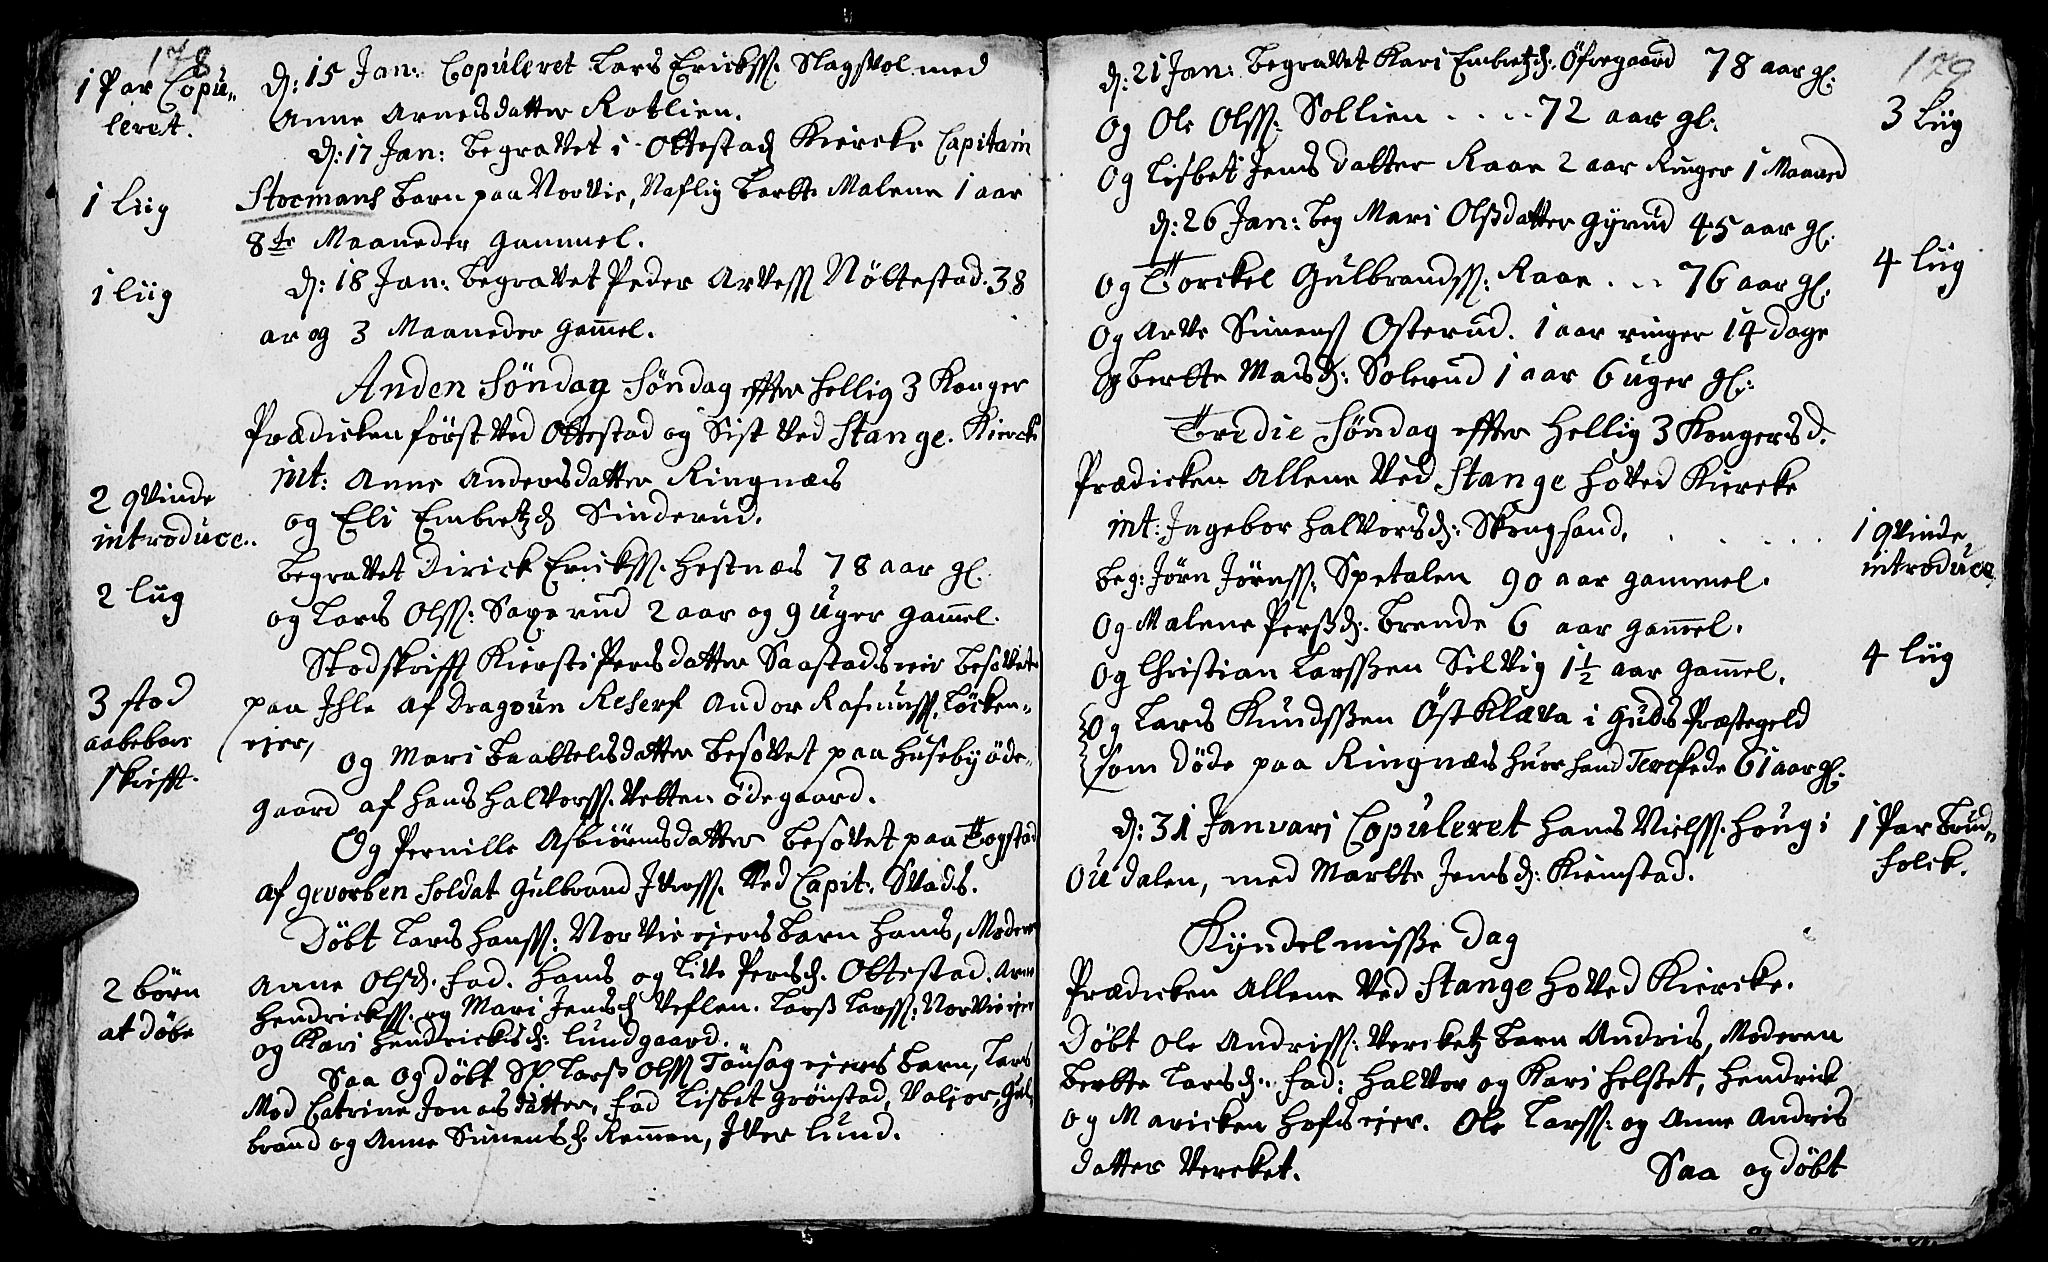 178
1 Par Copu-
leret.
d: 15 Jan: Copuleret Lars Erickss: Slagsvol med
Anne Arnesdatter Rotlien.
d: 17 Jan: begravet i Ottestad Kiercke Capitain
1 liig
Stocmans barn paa Norvie, Naflig Berte Malene 1 aar
8te Maaneder gammel.
1 liig
d: 18 Jan: begravet Peder Arvess Nöttestad 38
ar og 3 Maaneder gamel.
Anden Söndag Söndag effter hellig 3 Konger
Prædicken först ved Ottestad og Sist ved Stange Kiercke
2 qvinde
introduce..
int: Anne Andersdatter Ringnæs
og Eli Embretzd Sinderud.
2 liig
begravet Dirick Erickss. Hestnæs 78 aar gl.
og Lars Olss: Saxerud 2 aar og 9 uger gamel.
3 stod
aabebar
skrifft.
Stod skrifft Kiersti Persdatter Saastads eie besovet
paa Ihle af Dragoun Reserf Andor Rasmuss. Löcken-
eier,
og Mari Baaltelsdatter besovet paa Huseby öde-
gaard af Hans Halvorss. Vetten ödegaard.
Og Pernille Asbiörnsdatter besovet paa Togstad
af gevorben Soldat Gulbrand Iverss. ved Capit: Svads.
2 börn
at döbe
Döbt Lars Hanss: Norvie eiers barn Hans, Moderen
Anne Olsd. fad. Hans og Live Persd. Ottestad. Arne
Hendrickss. og Mari Jensd Veflen. Lars Larss: Norvie eier
og Kari Hendricksd: Lundgaard.
Saa og döbt Sl Lars Olss Tönsag eiers barn, Lars
Mod Catrine Jonasdatter, fad Lisbet Grönstad, Valior, Gul-
brand og Anne Simensd. Remmen, Iver Lund.
179
d: 21 Jan: begravet Kari Embretzd: Öfregaard 78 aar gl:
3 liig
og Ole Olss: Sollien . . . . 72 aar gl:
og Lisbet Jens datter Raae 2 aar Ringer 1 Maaned
d: 26 Jan: beg Mari Olsdatter Gyrud 45 aar gl:
4 liig
og Torckel Gulbrandss: Raae . . . 76 aar gl.
og Arve Simenss Osterud. 1 aar ringer 14 dage
og Berte Madsd: Solerud 1 aar 6 uger gl:
Tredie Söndag effter Hellig 3 Kongersd.
Prædicken allene ved Stange Hoved Kiercke
int: Ingebor Halvorsd: Skougsand. . . . . .
1 qvinde
introduce
beg: Jörn Jörnss. Spetalen 90 aar gammel.
og Malene Persd. Brende 6 aar gamel.
4 liig
og Christian Larssen Silvig 1½ aar gamel.
og Lars Knudssen Östklæva i Guds Præstegeld
som döde paa Ringnæs huor hand Terskede 61 aar gl:
1 Par Brud-
folck.
d: 31 Januarj Copuleret Hans Nielss. Houg i
Oudalen, med Marte Jensd: Kiemstad.
Kyndelmisse Dag
Prædicken allene ved Stange Hoved Kiercke.
Döbt Ole Andriss: Vercketz barn Andris, Moderen
Berte Larsd. fad: Halvor og Kari Helset, Hendrick
og Maricken Hofs eier. Ole Larss: og Anne Andris
datter Vercket.
Saa og döbt